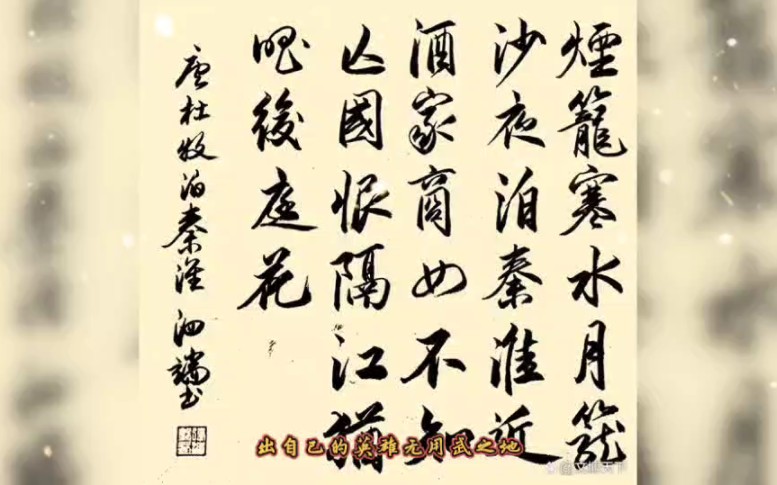 煙籠寒水月籠
沙夜泊秦淮近
酒家商女不知
亡國恨隔江猶
唱後庭花
唐杜牧泊秦淮
出自己的英雄无用武之地